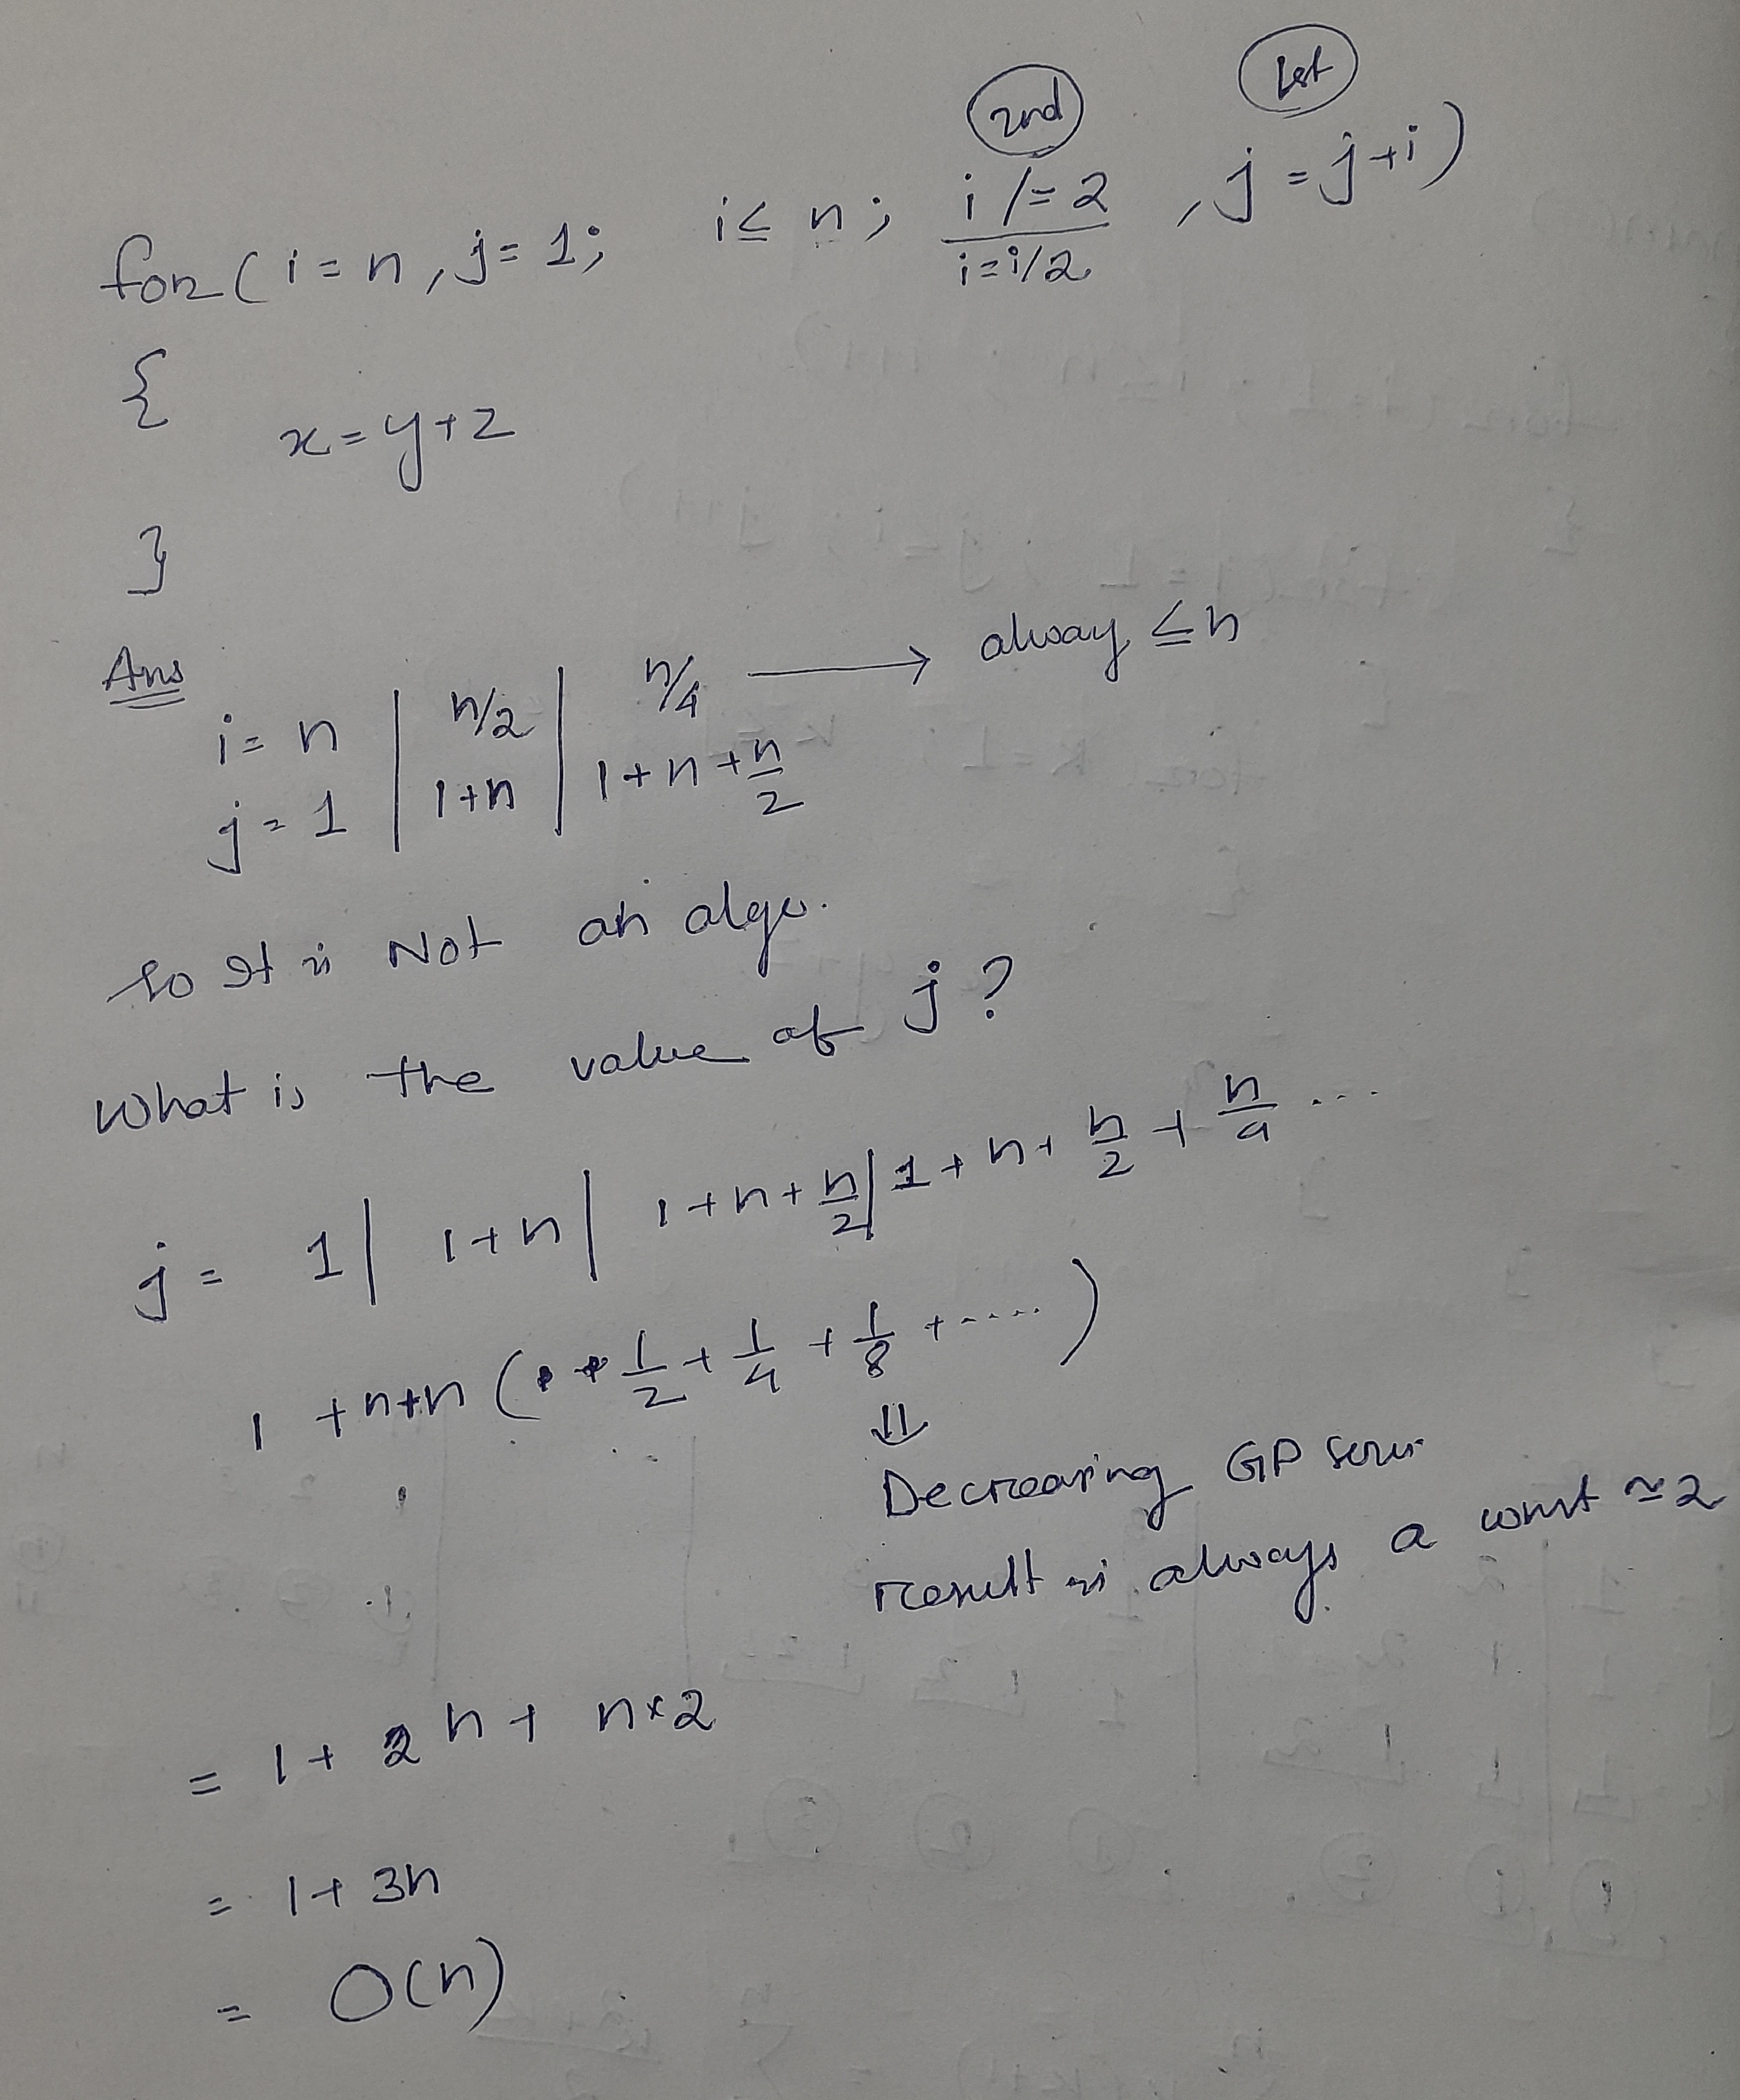 2nd 1st
for(i=n,j=1; i≤n; i/=2 ,j=j+i)
i=i/2
{
x=y+z
}
Ans
i=n | n/2 | n/4 → alway ≤n
j=1 | 1+n | 1+n+n/2
So It is Not an algo.
What is the value of j?
j= 1 | 1+n | 1+n+n/2 | 1+n+n/2+n/4...
1+n+n(1/2+1/4+1/8+.....)
⇓
Decreasing GP seris
result is always a const ≃2
= 1+2n+n×2
= 1+3n
= O(n)